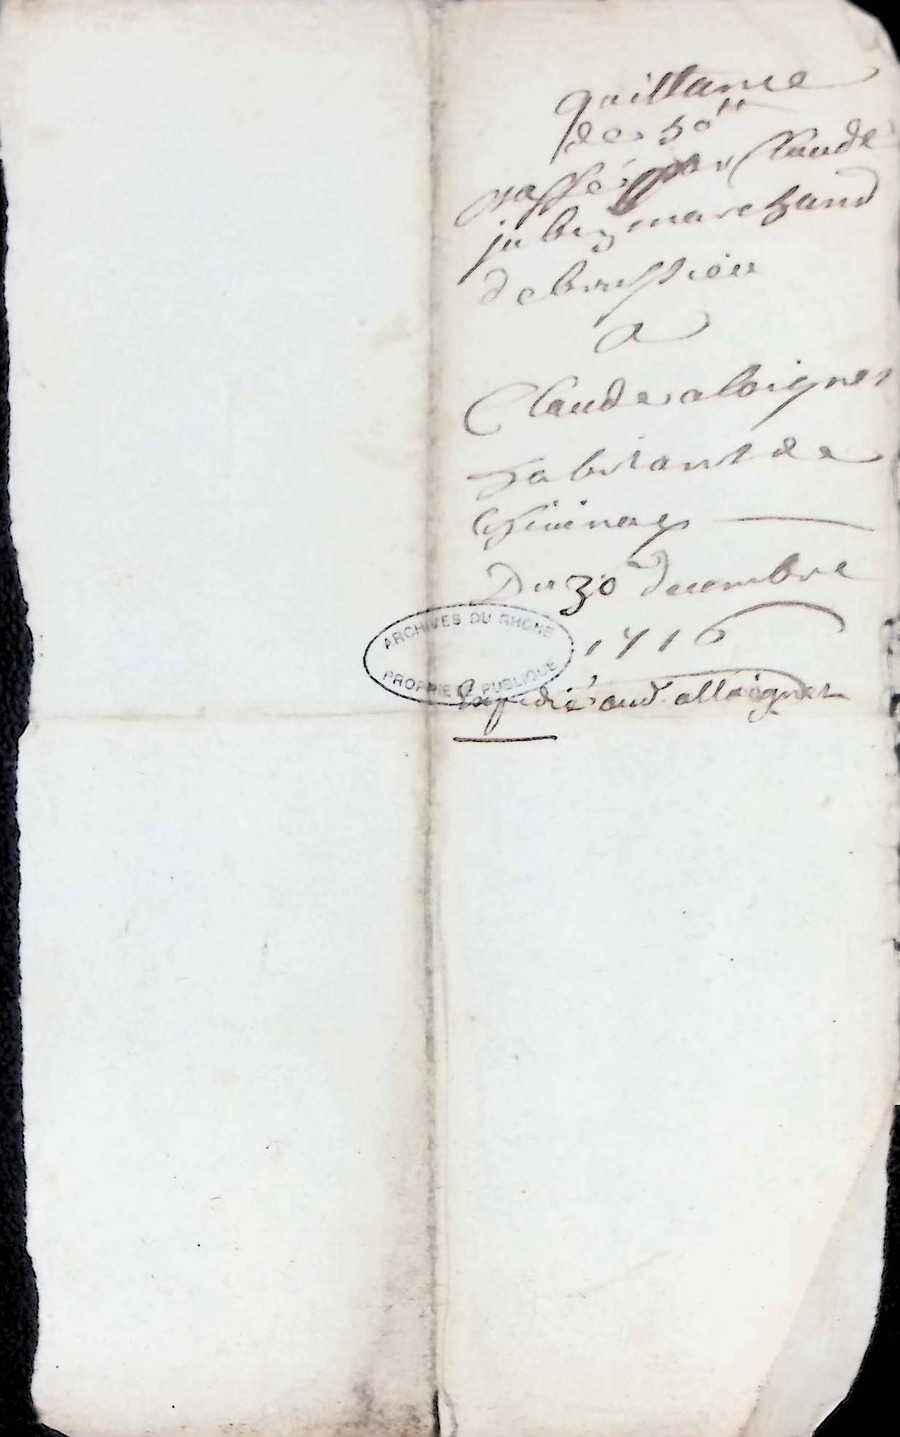 quittance
de 50ᵗᵗ
passée par Claude
jubin marchand
de brussieu
a
Claude aloignet
habitant de
Du 30 decembre
1716
Expedié aud. alloignet
ARCHIVES DU RHÔNE
PROPRIÉTÉ PUBLIQUE